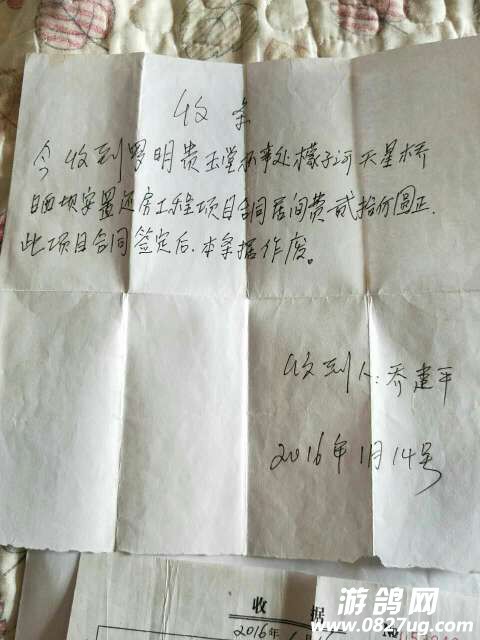 收条
今收到罗明贵玉堂办事处檬子河天星桥
晒坝安置还房工程项目合同居间费贰拾何圆正.
此项目合同签定后.本条据作废。
收到人:乔建平
2016年1月14号
收 据
2016年
游鸽网
www.0827ug.com